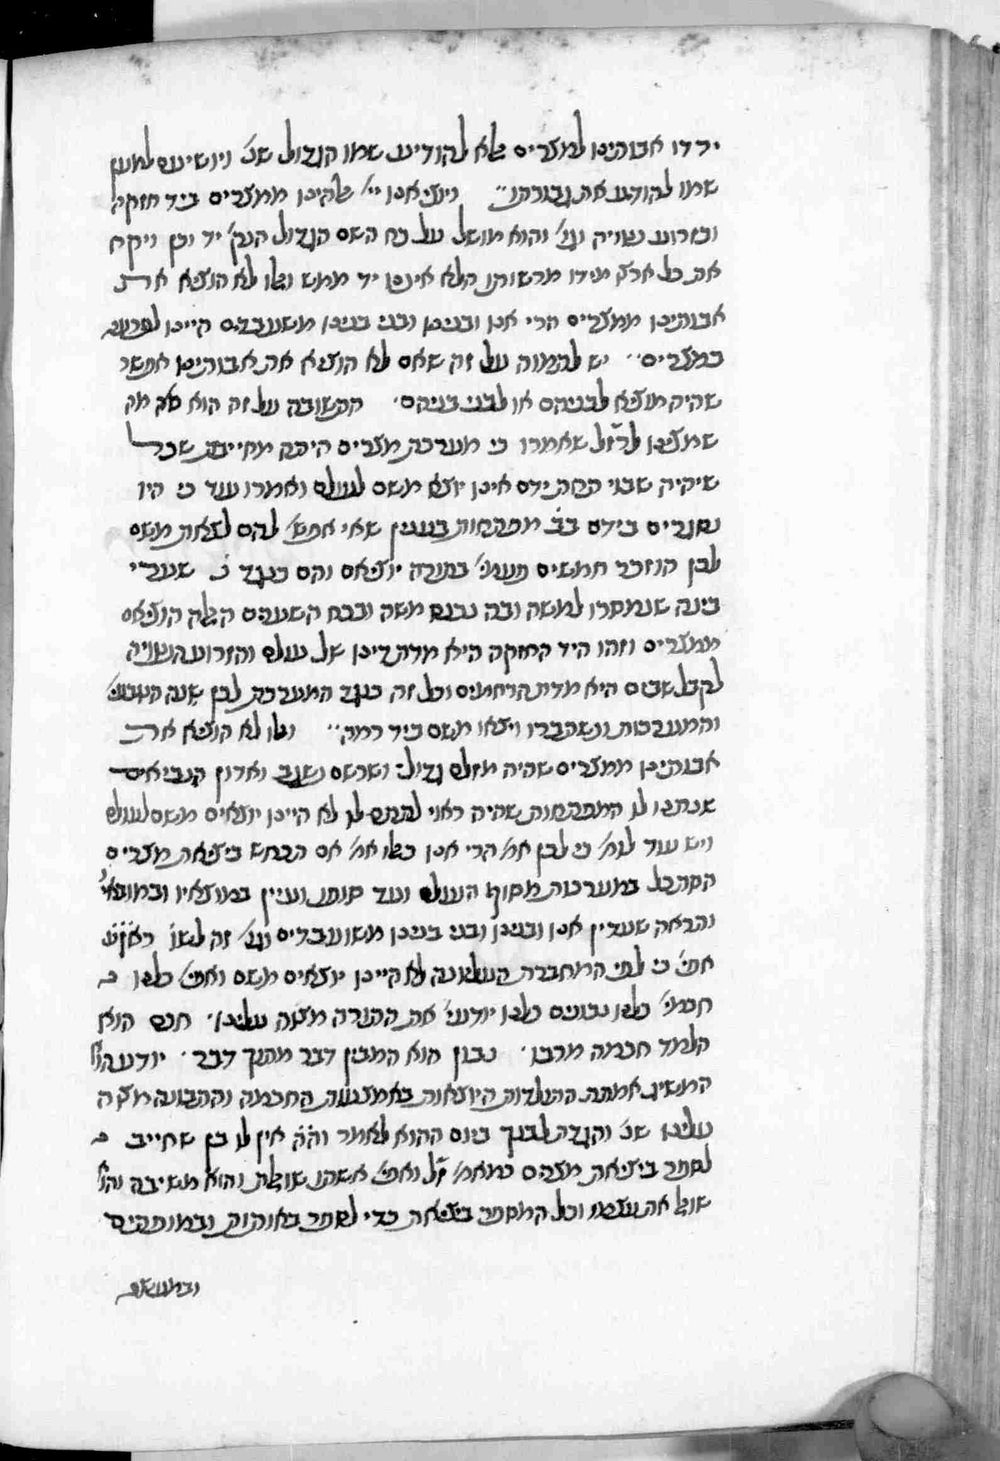 ירדו אבותינו למצרים אלא להודיע שמו הגדול שנ' ויושיעם למען
שמו להודיע את גבורתו ויוציאנו יי' אלהינו ממצרים ביד חזקה
ובזרוע נטויה וגו' והוא מושל על כח השם הגדול הנק' יד וכן ויקח
את כל ארצו מידו מרשותו הלא אינכו יד ממש ואלו לא הוציא את
אבותינו ממצרים הרי אנו ובנינו ובני בנינו משועבדים היינו לפרעה
במצרים יש לתמוה על זה שאם לא הוציא את אבותינו אפשר
שהיה מוציא לבניהם או לבני בניהם התשובה על זה הוא מה
שמצינו לרז"ל שאמרו כי מערכת מצרים היתה מחייבת שכל
שיהיה שבוי תחת ידם אינו יוצא משם לעולם ואמרו עוד כי היו
סגורים בידם בב' מפתחות בענין שאי אפש' להם לצאת משם
לכן הוזכר חמשים פעמי' בתורה יציאת והם כנגד נ' שערי
בינה שנמסרו למשה ובה נכנס משה ובכח השערים האלה הוציאם
ממצרים וזהו היד החזקה היא מדת דינו של עולם והזרוע הנטויה
לקבל שבים היא מדת הרחמים וכל זה כנגד המערכת לכן שנה הטבעי'
והמערכות ונשתברו ויצאו משם ביד רמה ואלו לא הוציא את
אבותינו ממצרים שהיה מזלם גדול ושרשם נשגב ואדון הנביאים
שנתנו לו המפתחות שהיה ראוי להכנס לו לא היינו יוצאים משם לעולם
ויש עוד לומ' כי לכן אמ' הרי אנו כאלו אמ' אם תכחש ביציאת מצרים
הסתכל במערכות מסוף העולם ועד סופו ועיין במוצאיו ובמובאיו
ותראה שעדין אנו ובנינו ובני בנינו משועבדים וגו' זה לשו'
אפי' כי לפי המחברת העליונה לא היינו יוצאים משם ואפי' כלנו
חכמי' כלנו נבונים כלנו יודעי' את התורה מצוה עלינו חכם הוא
הלמד חכמה מרבו נבון הוא המבין דבר מתוך דבר יודע הוא
המשיג אמתת התולדות היוצאות באמצעות החכמה והתבונה מצוה
עלינו שנ' והגדת לבנך ביום ההוא לאמר והיה אין לו בן שחייב
לספר ביציאת מצרים כמאמ' ז"ל ואפי' אשתו שואלת והוא משיבה והוא
שואל את עצמו וכל המספר ביציאת כדי לספר באותות ובמופתים